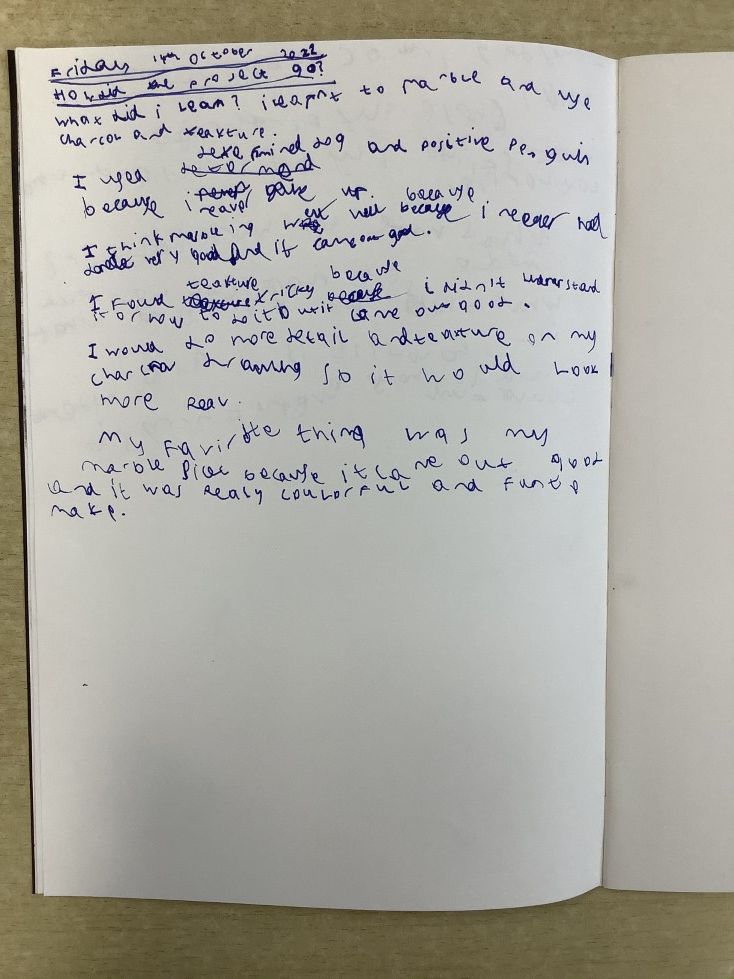 Friday 14th October 2022
How did the project go?
what did i learn? i leapnt to marble and use
charcoal and teakture.
I used determined dog and positive Penguin
because i never gave up. because
I think marbleing went well because i never had
done very good and it came out good.
I found teakture tricky because i didn't understand
it or how to do it but it came out good.
I would do more detail and teature on my
charcoal drawing so it would Look
more real.
My favirite thing was my
marble piece because it came out good
and it was realy coulorful and fun to
make.